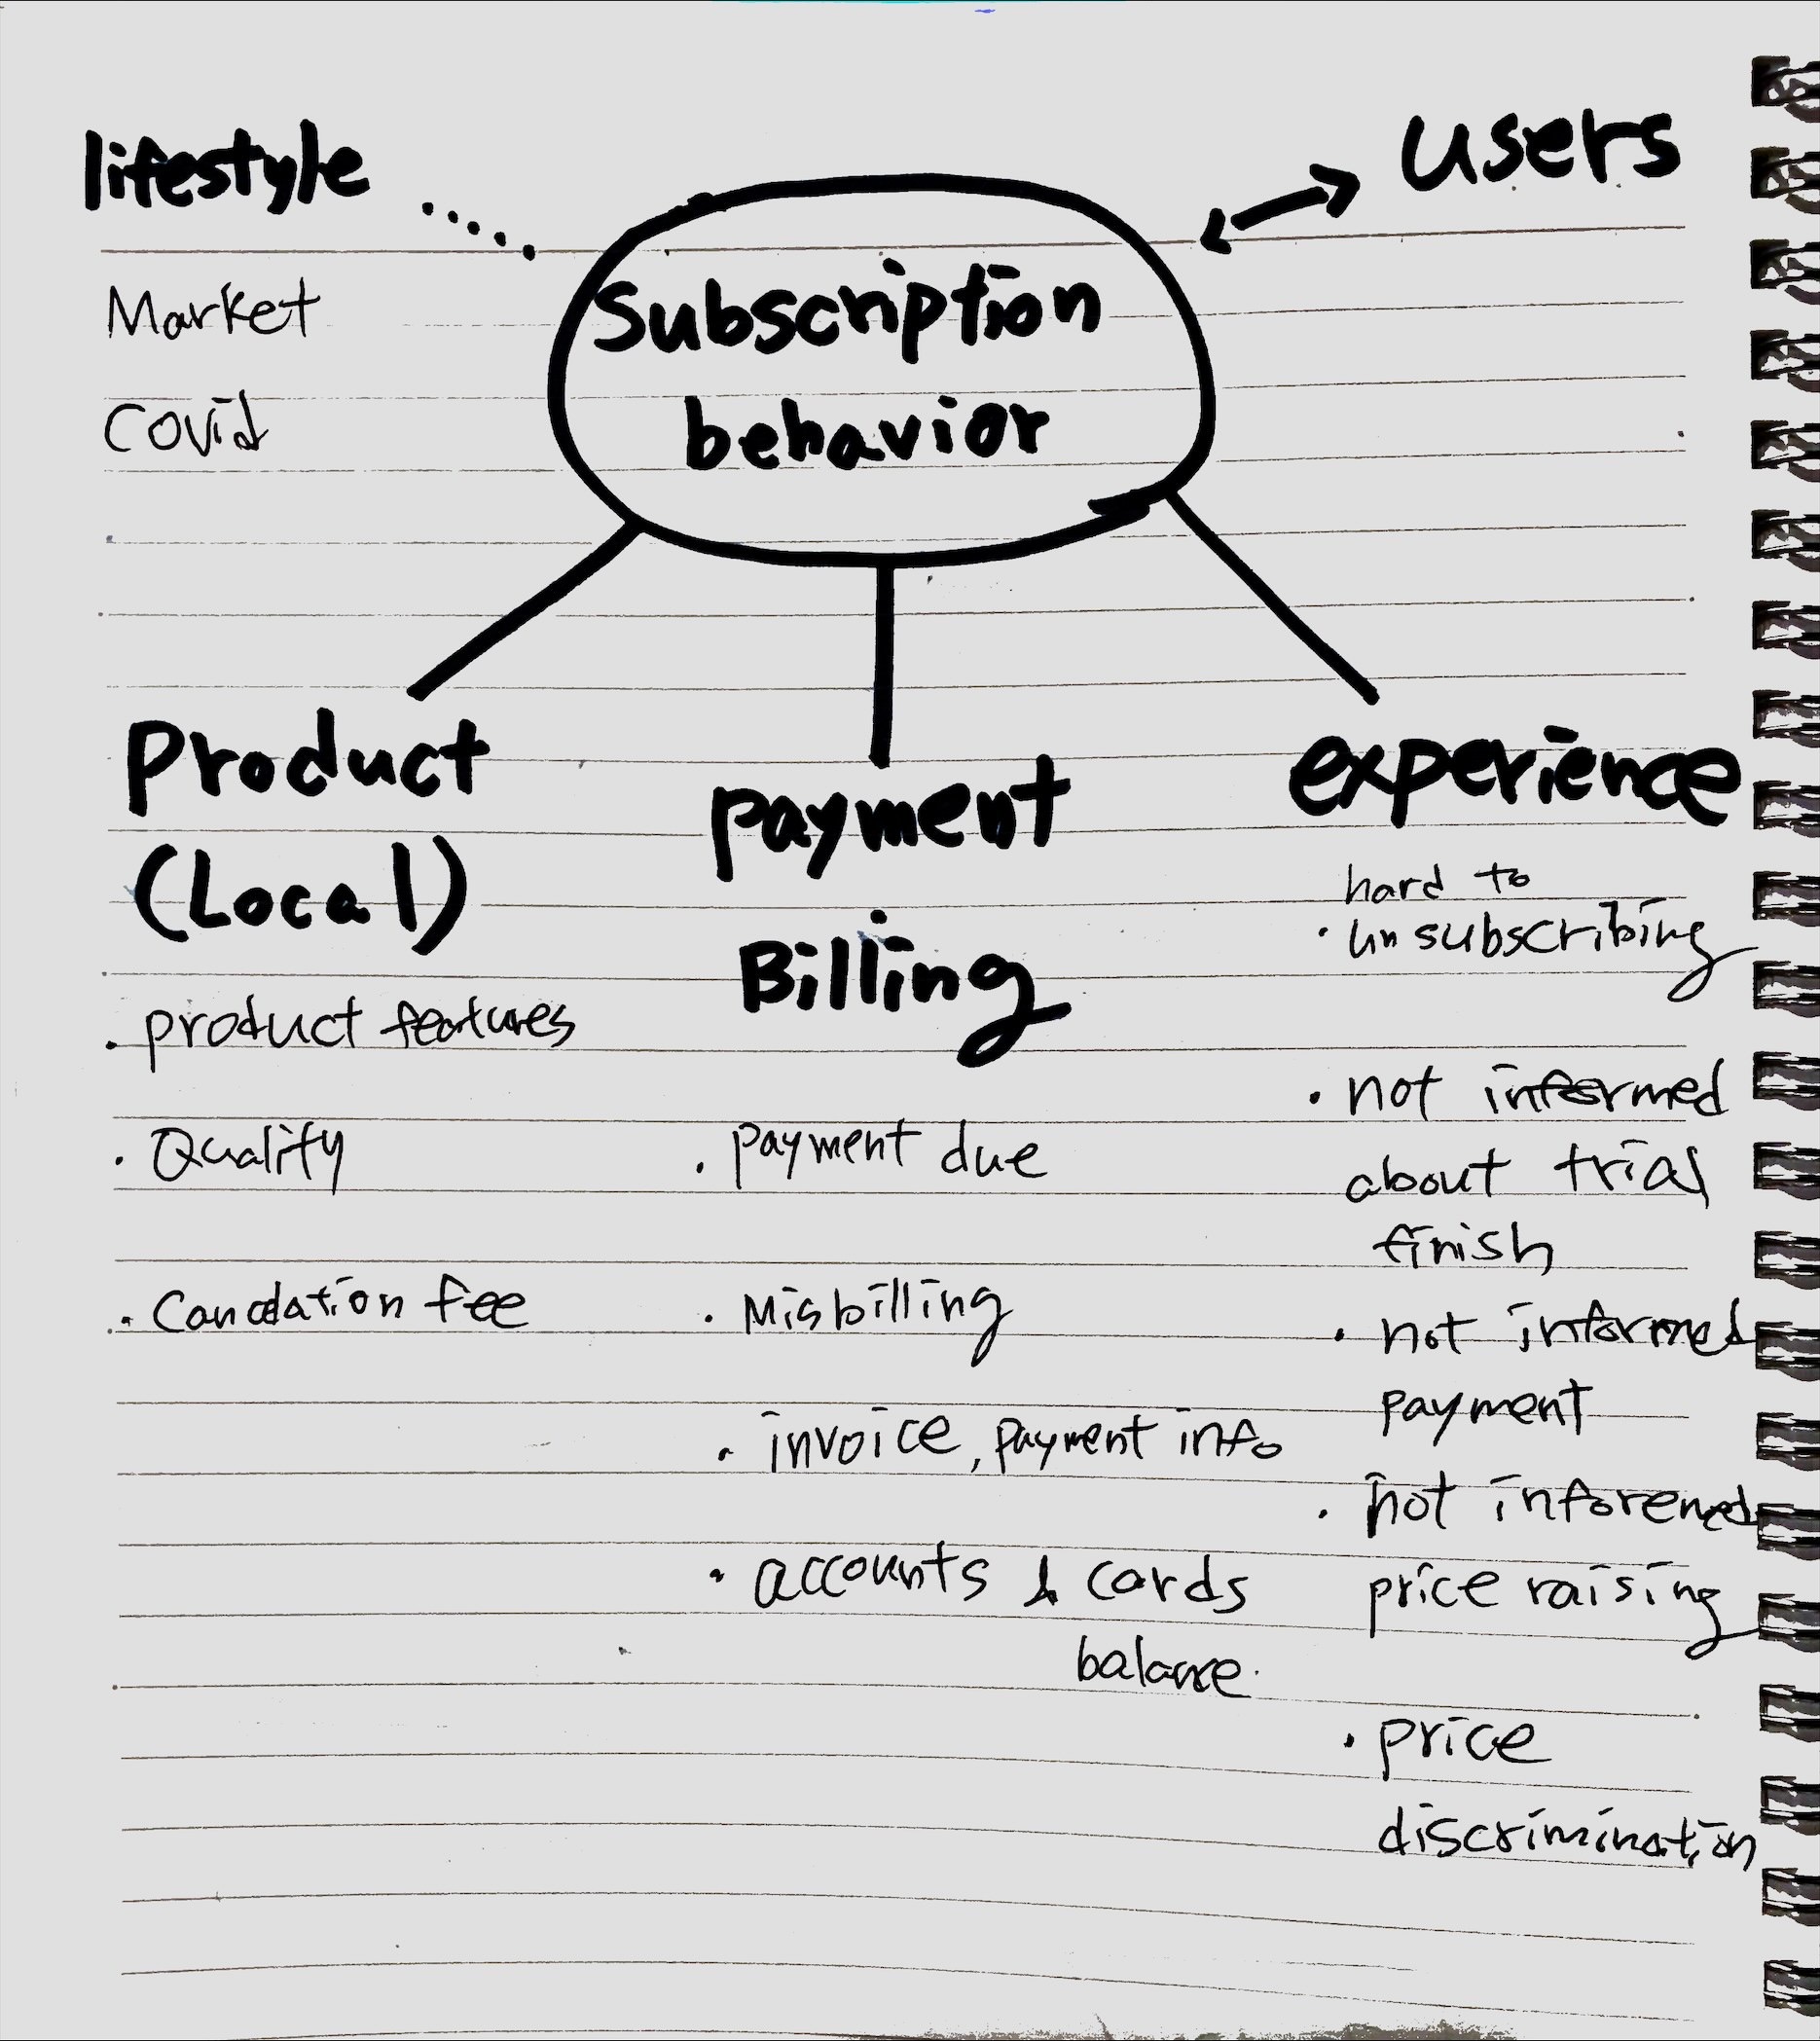 lifestyle
Market
Covid
Subscription
behavior
users
Product
(Local)
. product features
. Quality
. Canclation fee
payment
Billing
. payment due
. Misbilling
. invoice, payment info
. accounts & cards
balance.
experience
hard to
. unsubscribing
. not informed
about trial
finish
. not informed
payment
. not inforemed
price raising
. price
discrimination